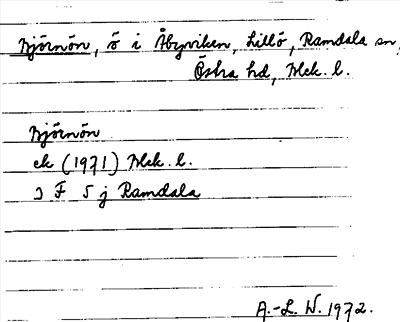 Björnön, ö i Åbyviken, Lillö, Ramdala sn,
Östra hd, Blek. l.
Björnön
ek (1971) Blek. l.
J F 5 j Ramdala
A.-L. W. 1972.